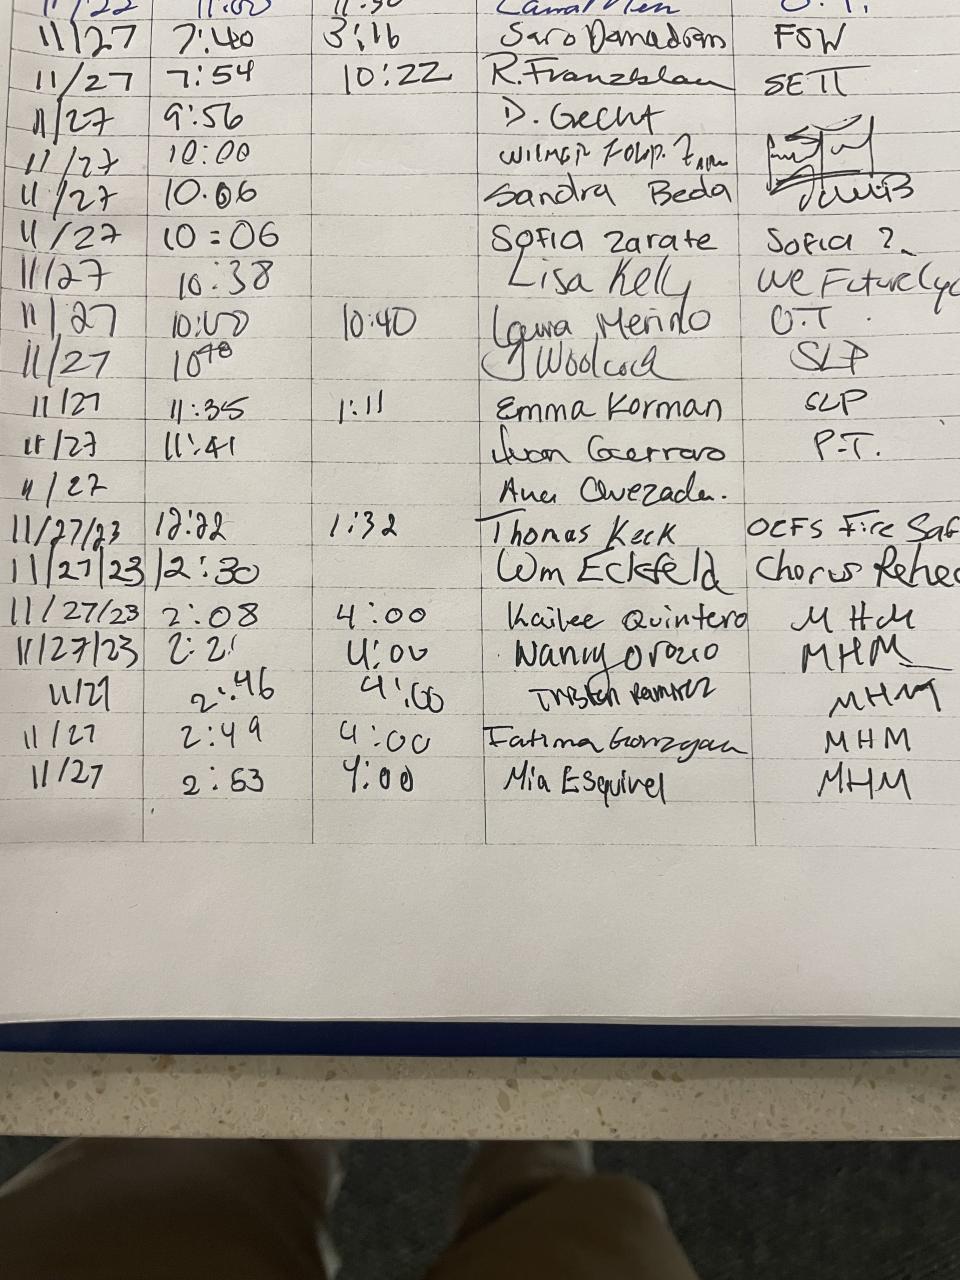 11/22 11:00 11:30 O.T.
11/27 7:40 3:16 Saro Damadian FSW
11/27 7:54 10:22 R. Franzblau SETT
11/27 9:56 D. Gecht
11/27 10:00 WILMER
11/27 10.06 Sandra Beda
11/27 10=06 Sofia Zarate Sofia Z.
11/27 10:38 Lisa Kelly We Future Cyc
11/27 10:00 10:40 Laura Merino O.T.
11/27 10 48 J Woolcock SLP
11/27 11:35 1:11 Emma Korman SLP
11/27 11:41 Juan Guerrero P.T.
11/27 Ana Quezada.
11/27/23 12:22 1:32 Thomas Keck OCFS Fire Saf
11/27/23 12:30 Wm Eckfeld Chorus Rehea
11/27/23 2:08 4:00 Kailee Quintero MHM
11/27/23 2:21 4:00 Nancy Orozco MHM
11/27 2:46 4:00 Tristen Ramirez MHM
11/27 2:49 4:00 Fatima MHM
11/27 2:53 4:00 Mia Esquivel MHM